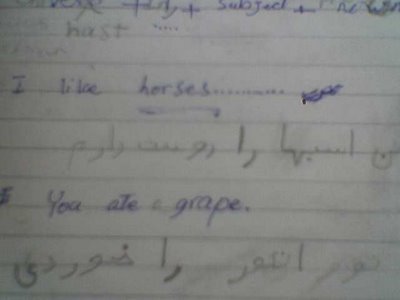 + subject +
hast .....
I like horses...........
من اسبها را دوست دارم
You ate a grape.
تو انگور را خوردی